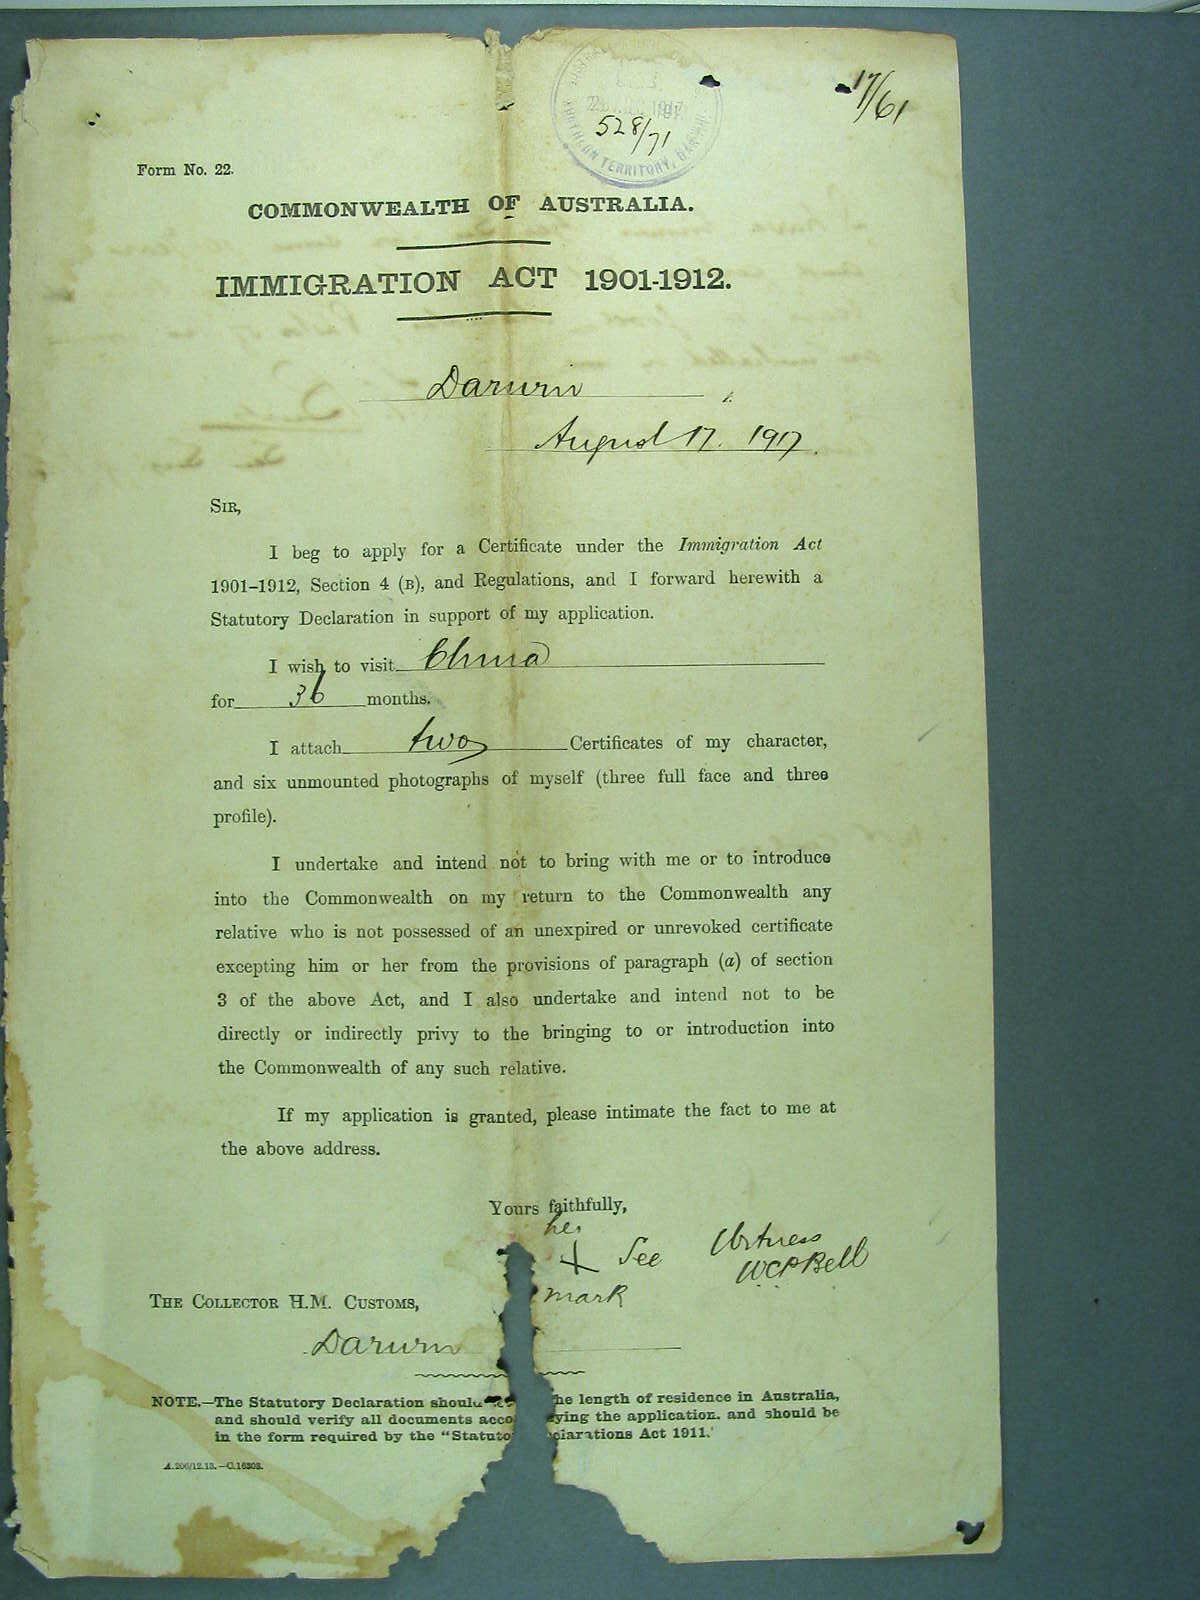 528/71
17/61
NORTHERN TERRITORY, DARWIN
Form No. 22.
COMMONWEALTH OF AUSTRALIA.
IMMIGRATION ACT 1901-1912.
Darwin
August 17. 1917.
SIR,
I beg to apply for a Certificate under the Immigration Act
1901–1912, Section 4 (B), and Regulations, and I forward herewith a
Statutory Declaration in support of my application.
I wish to visit China
for 36 months.
I attach two Certificates of my character,
and six unmounted photographs of myself (three full face and three
profile).
I undertake and intend not to bring with me or to introduce
into the Commonwealth on my return to the Commonwealth any
relative who is not possessed of an unexpired or unrevoked certificate
excepting him or her from the provisions of paragraph (a) of section
3 of the above Act, and I also undertake and intend not to be
directly or indirectly privy to the bringing to or introduction into
the Commonwealth of any such relative.
If my application is granted, please intimate the fact to me at
the above address.
Yours faithfully,
her
+ See
mark
Witness
WCPBell
THE COLLECTOR H.M. CUSTOMS,
Darwin
NOTE.—The Statutory Declaration should he length of residence in Australia,
and should verify all documents acco ying the application. and should be
in the form required by the "Statuto clarations Act 1911.'
A.206/12.13.—C.16303.